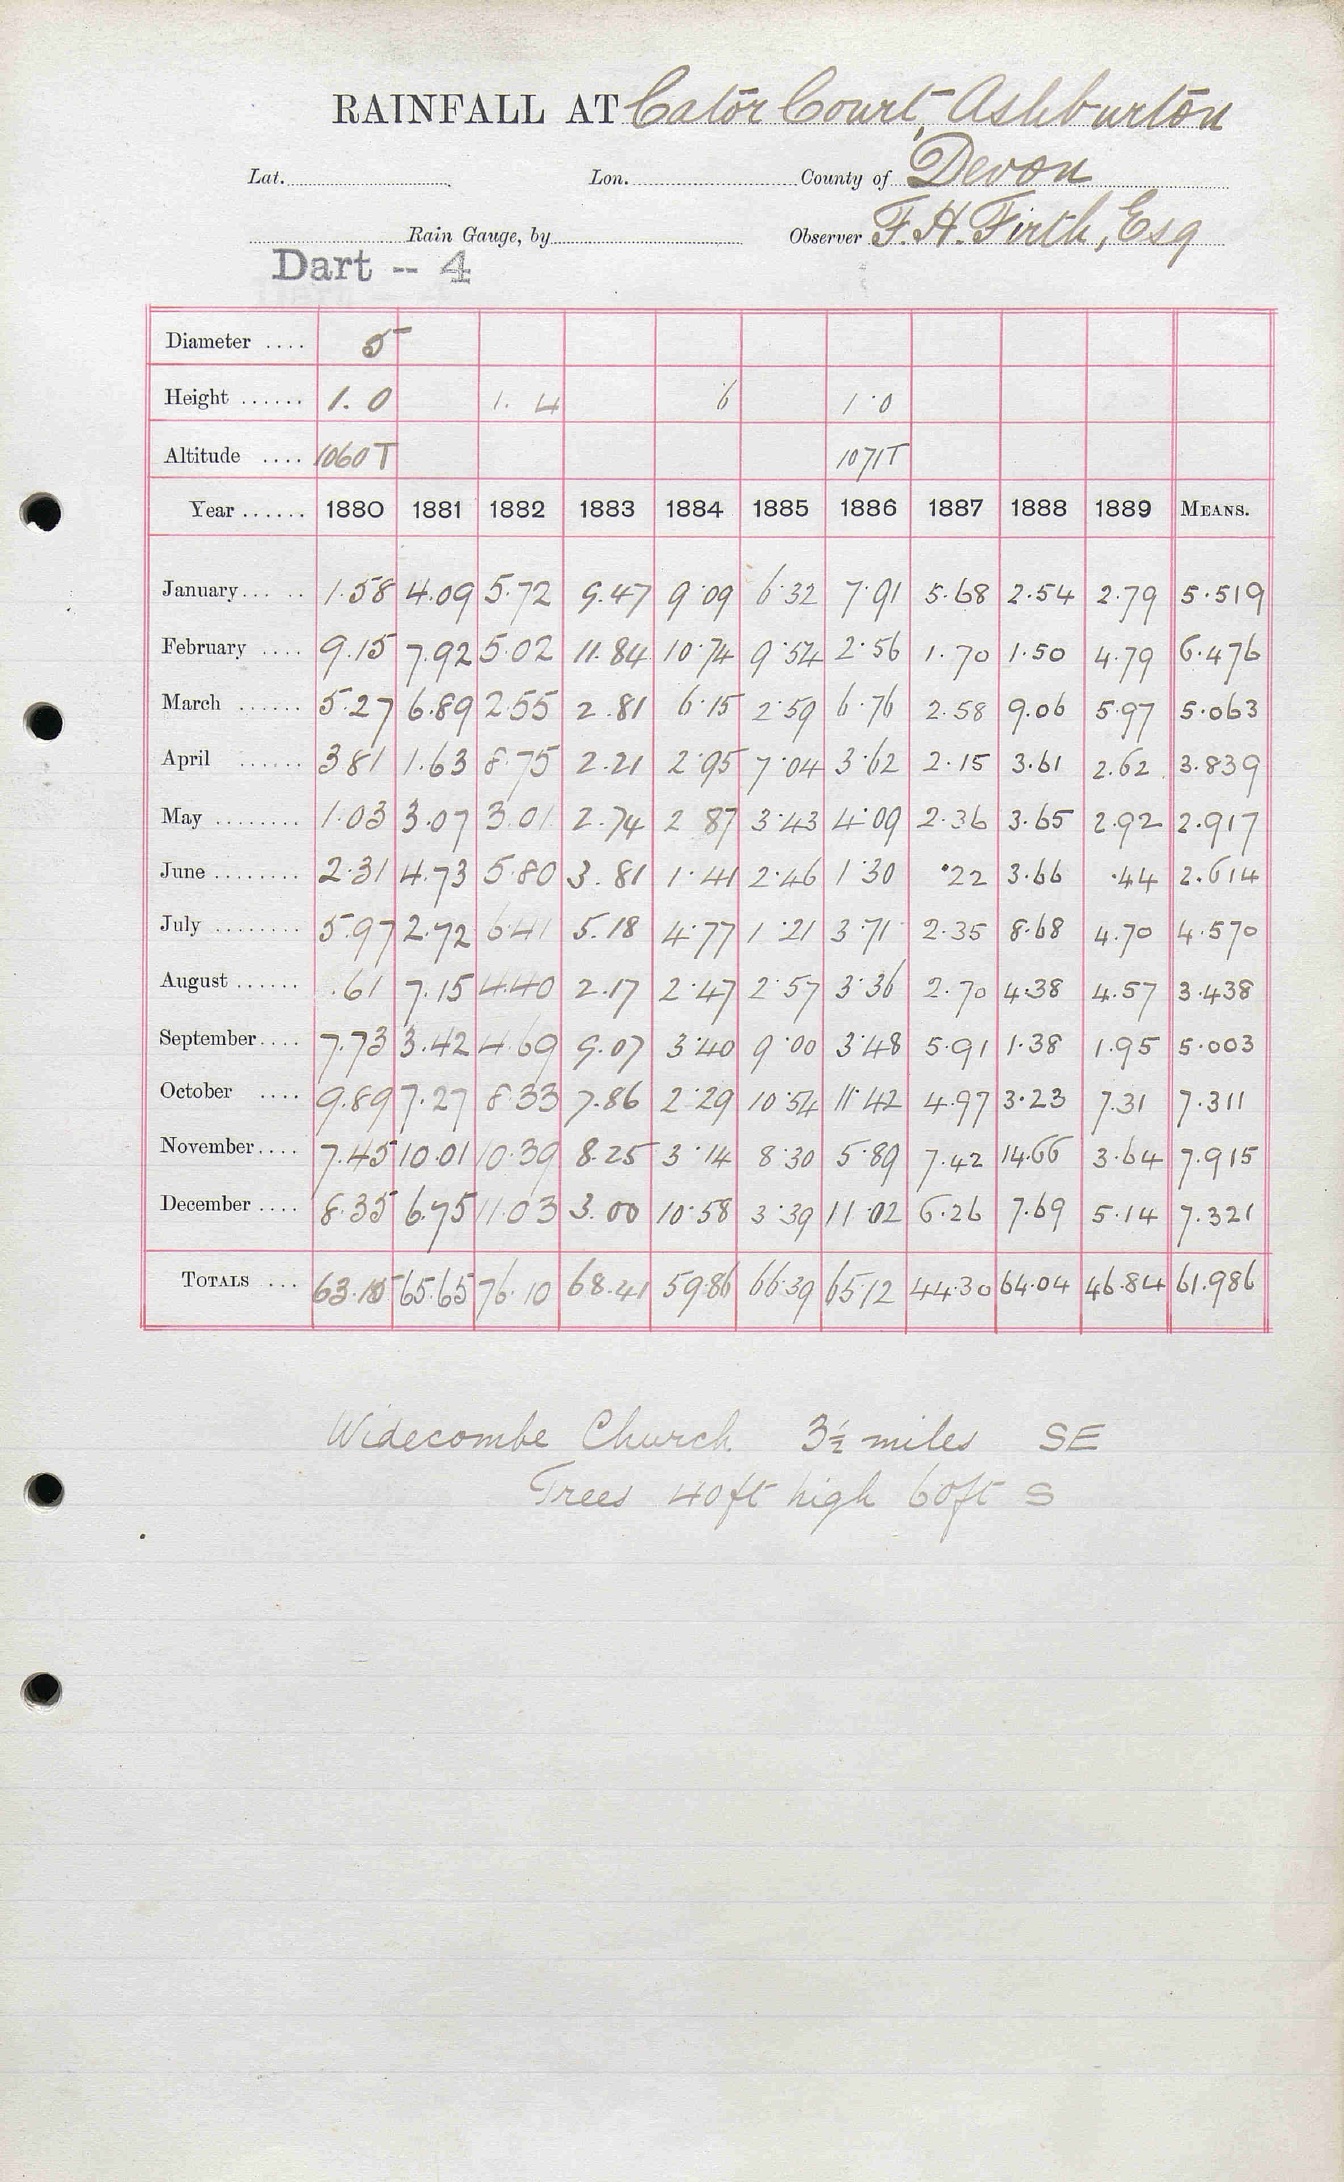 RAINFALL AT Cator Court, Ashburton
Lat. Lon. County of Devon
Rain Gauge, by Observer F. H. Firth, Esq
Dart -- 4
Diameter .... 5
Height ...... 1.0 1. 4 6 1.0
Altitude .... 1060T 1071T
Year ...... 1880 1881 1882 1883 1884 1885 1886 1887 1888 1889 MEANS.
January... .. 1.58 4.09 5.72 9.47 9.09 6.32 7.91 5.68 2.54 2.79 5.519
February .... 9.15 7.92 5.02 11.84 10.74 9.54 2.56 1.70 1.50 4.79 6.476
March ...... 5.27 6.89 2.55 2.81 6.15 2.59 6.76 2.58 9.06 5.97 5.063
April ...... 3 81 1.63 8.75 2.21 2.95 7.04 3.62 2.15 3.61 2.62 3.839
May ........ 1.03 3.07 3.01 2.74 2 87 3.43 4.09 2.36 3.65 2.92 2.917
June ........ 2.31 4.73 5.80 3.81 1.41 2.46 1.30 .22 3.66 .44 2.614
July ........ 5.97 2.72 6.41 5.18 4.77 1.21 3.71 2.35 8.68 4.70 4.570
August ...... .61 7.15 4.40 2.17 2.47 2.57 3.36 2.70 4.38 4.57 3.438
September.... 7.73 3.42 4.69 9.07 3.40 9.00 3.48 5.91 1.38 1.95 5.003
October .... 9.89 7.27 8.33 7.86 2.29 10.54 11.42 4.97 3.23 7.31 7.311
November.... 7.45 10.01 10.39 8.25 3.14 8.30 5.89 7.42 14.66 3.64 7.915
December .... 8.35 6.75 11.03 3.00 10.58 3.39 11.02 6.26 7.69 5.14 7.321
TOTALS ... 63.15 65.65 76.10 68.41 59.86 66.39 65.12 44.30 64.04 46.84 61.986
Widecombe Church 3½ miles SE
Trees 40ft high 60ft S